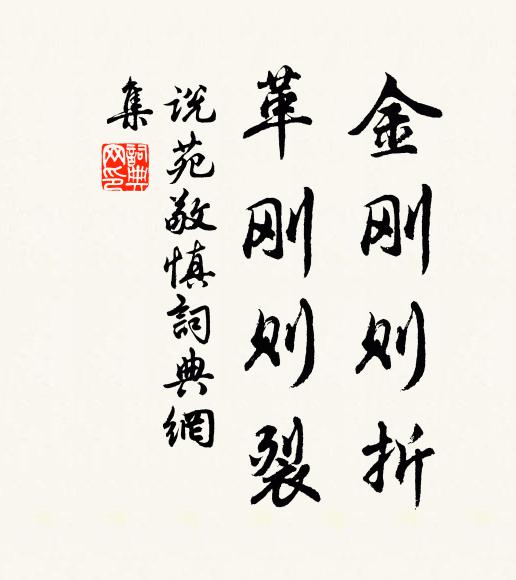 金刚则折
革刚则裂
说苑敬慎詞典網
集
詞典
网印